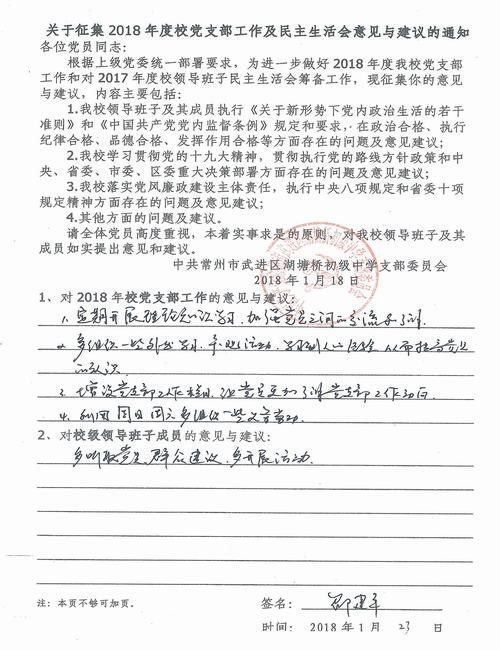 关于征集 2018 年度校党支部工作及民主生活会意见与建议的通知
各位党员同志：
根据上级党委统一部署要求，为进一步做好 2018 年度我校党支部
工作和对 2017 年度校领导班子民主生活会筹备工作，现征集你的意见
与建议，内容主要包括：
1.我校领导班子及其成员执行《关于新形势下党内政治生活的若干
准则》和《中国共产党党内监督条例》规定和要求，在政治合格、执行
纪律合格、品德合格、发挥作用合格等方面存在的问题及意见建议；
2.我校学习贯彻党的十九大精神，贯彻执行党的路线方针政策和中
央、省委、市委、区委重大决策部署方面存在的问题及意见建议；
3.我校落实党风廉政建设主体责任，执行中央八项规定和省委十项
规定精神方面存在的问题及意见建议；
4.其他方面的问题及建议。
请全体党员高度重视，本着实事求是的原则，对我校领导班子及其
成员如实提出意见和建议。
中共常州市武进区湖塘桥初级中学支部委员会
2018 年 1 月 18 日
1、对 2018 年校党支部工作的意见与建议：
1. 定期开展理论知识学习，加强党员之间的交流与了解.
2. 多组织一些外出学习、参观活动，学习别人的经验，从而提高党员
的认识
3. 增设党支部工作栏目，让党员更加了解党支部工作动向
4. 利用节日多组织一些文言活动
2、对校级领导班子成员的意见与建议：
多听取党员、群众建议，多开展活动.
注：本页不够可加页。
签名：邵建平
时间： 2018 年 1 月 23 日